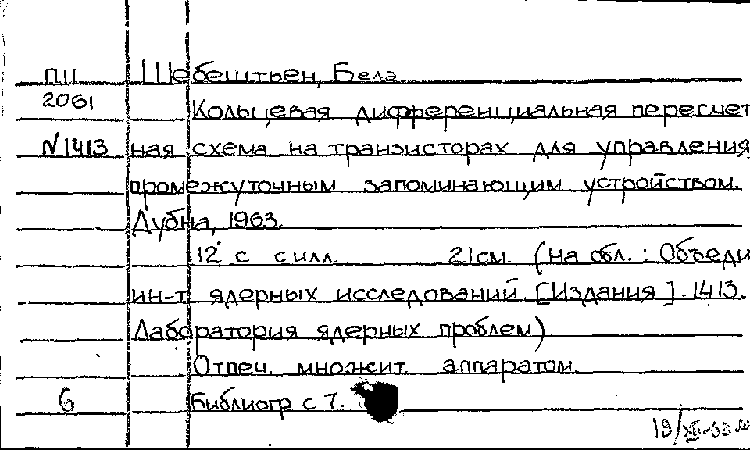 ПИ Шебештьен, Бела.
2061 Кольцевая дифференциальная пересчет
N1413 ная схема на транзисторах для управления
промежуточным запоминающим устройством.
Дубна, 1963.
12 с с илл. 21см. (На обл.: Объеди
ин-т ядерных исследований [Издания]. 1413.
Лаборатория ядерных проблем)
Отпеч. множит. аппаратом.
6 Библиогр с 7.
19/